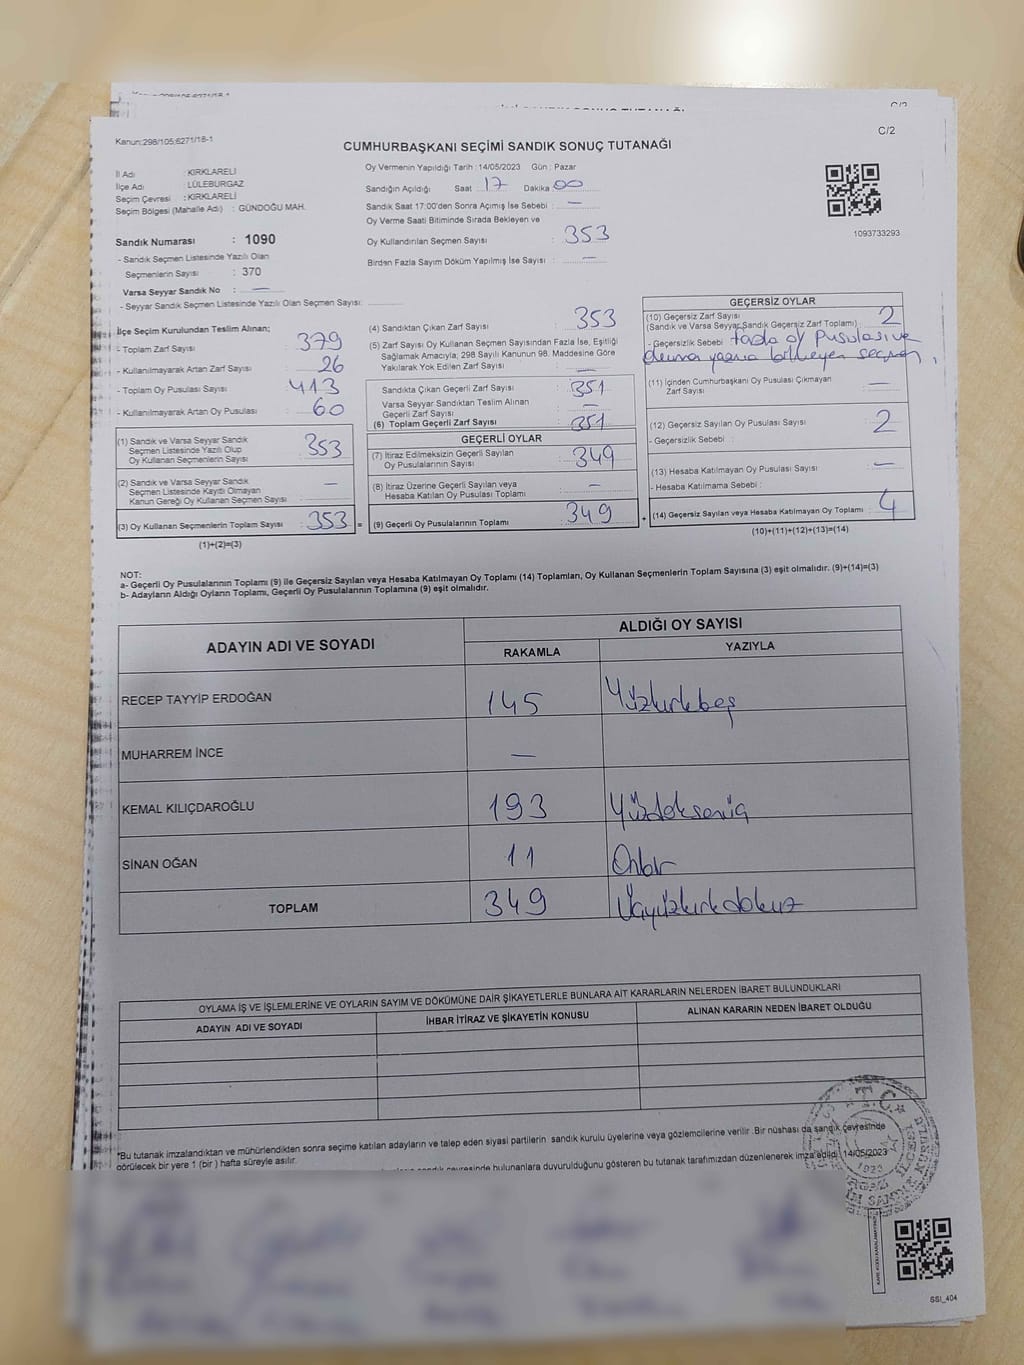 C/2
Kanun:298/105;6271/18-1
CUMHURBAŞKANI SEÇİMİ SANDIK SONUÇ TUTANAĞI
C/2
İl Adı : KIRKLARELİ
İlçe Adı : LÜLEBURGAZ
Seçim Çevresi : KIRKLARELİ
Seçim Bölgesi (Mahalle Adı) : GÜNDOĞU MAH.
Sandık Numarası : 1090
- Sandık Seçmen Listesinde Yazılı Olan
Seçmenlerin Sayısı : 370
Varsa Seyyar Sandık No : —
- Seyyar Sandık Seçmen Listesinde Yazılı Olan Seçmen Sayısı:
Oy Vermenin Yapıldığı Tarih : 14/05/2023 Gün : Pazar
Sandığın Açıldığı Saat 17 Dakika 00
Sandık Saat 17:00'den Sonra Açımış İse Sebebi : —
Oy Verme Saati Bitiminde Sırada Bekleyen ve
Oy Kullandırılan Seçmen Sayısı : 353
Birden Fazla Sayım Döküm Yapılmış İse Sayısı : —
1093733293
İlçe Seçim Kurulundan Teslim Alınan;
- Toplam Zarf Sayısı : 379
- Kullanılmayarak Artan Zarf Sayısı : 26
- Toplam Oy Pusulası Sayısı : 413
- Kullanılmayarak Artan Oy Pusulası : 60
(1) Sandık ve Varsa Seyyar Sandık
Seçmen Listesinde Yazılı Olup
Oy Kullanan Seçmenlerin Sayısı : 353
(2) Sandık ve Varsa Seyyar Sandık
Seçmen Listesinde Kayıtlı Olmayan
Kanun Gereği Oy Kullanan Seçmen Sayısı : —
(3) Oy Kullanan Seçmenlerin Toplam Sayısı : 353 =
(1)+(2)=(3)
(4) Sandıktan Çıkan Zarf Sayısı : 353
(5) Zarf Sayısı Oy Kullanan Seçmen Sayısından Fazla İse, Eşitliği
Sağlamak Amacıyla; 298 Sayılı Kanunun 98. Maddesine Göre
Yakılarak Yok Edilen Zarf Sayısı : —
Sandıkta Çıkan Geçerli Zarf Sayısı : 351
Varsa Seyyar Sandıktan Teslim Alınan
Geçerli Zarf Sayısı : —
(6) Toplam Geçerli Zarf Sayısı : 351
GEÇERLİ OYLAR
(7) İtiraz Edilmeksizin Geçerli Sayılan
Oy Pusulalarının Sayısı : 349
(8) İtiraz Üzerine Geçerli Sayılan veya
Hesaba Katılan Oy Pusulası Toplamı : —
(9) Geçerli Oy Pusulalarının Toplamı : 349 +
GEÇERSİZ OYLAR
(10) Geçersiz Zarf Sayısı
(Sandık ve Varsa Seyyar Sandık Geçersiz Zarf Toplamı) : 2
- Geçersizlik Sebebi : fazla oy pusulası ve
yazma bilmeyen seçmen.
(11) İçinden Cumhurbaşkanı Oy Pusulası Çıkmayan
Zarf Sayısı : —
(12) Geçersiz Sayılan Oy Pusulası Sayısı : 2
- Geçersizlik Sebebi :
(13) Hesaba Katılmayan Oy Pusulası Sayısı : —
- Hesaba Katılmama Sebebi :
(14) Geçersiz Sayılan veya Hesaba Katılmayan Oy Toplamı : 4
(10)+(11)+(12)+(13)=(14)
NOT:
a- Geçerli Oy Pusulalarının Toplamı (9) ile Geçersiz Sayılan veya Hesaba Katılmayan Oy Toplamı (14) Toplamları, Oy Kullanan Seçmenlerin Toplam Sayısına (3) eşit olmalıdır. (9)+(14)=(3)
b- Adayların Aldığı Oyların Toplamı, Geçerli Oy Pusulalarının Toplamına (9) eşit olmalıdır.
ADAYIN ADI VE SOYADI
ALDIĞI OY SAYISI
RAKAMLA YAZIYLA
RECEP TAYYİP ERDOĞAN 145 Yüzkırkbeş
MUHARREM İNCE —
KEMAL KILIÇDAROĞLU 193 Yüzdoksanüç
SİNAN OĞAN 11 Onbir
TOPLAM 349 Üçyüzkırkdokuz
OYLAMA İŞ VE İŞLEMLERİNE VE OYLARIN SAYIM VE DÖKÜMÜNE DAİR ŞİKAYETLERLE BUNLARA AİT KARARLARIN NELERDEN İBARET BULUNDUKLARI
ADAYIN ADI VE SOYADI İHBAR İTİRAZ VE ŞİKAYETİN KONUSU ALINAN KARARIN NEDEN İBARET OLDUĞU
*Bu tutanak imzalandıktan ve mühürlendikten sonra seçime katılan adayların ve talep eden siyasi partilerin sandık kurulu üyelerine veya gözlemcilerine verilir .Bir nüshası da sandık çevresinde
görülecek bir yere 1 (bir ) hafta süreyle asılır.
sandık çevresinde bulunanlara duyurulduğunu gösteren bu tutanak tarafımızdan düzenlenerek imza edildi 14/05/2023
T.C.
1923
SSI_404